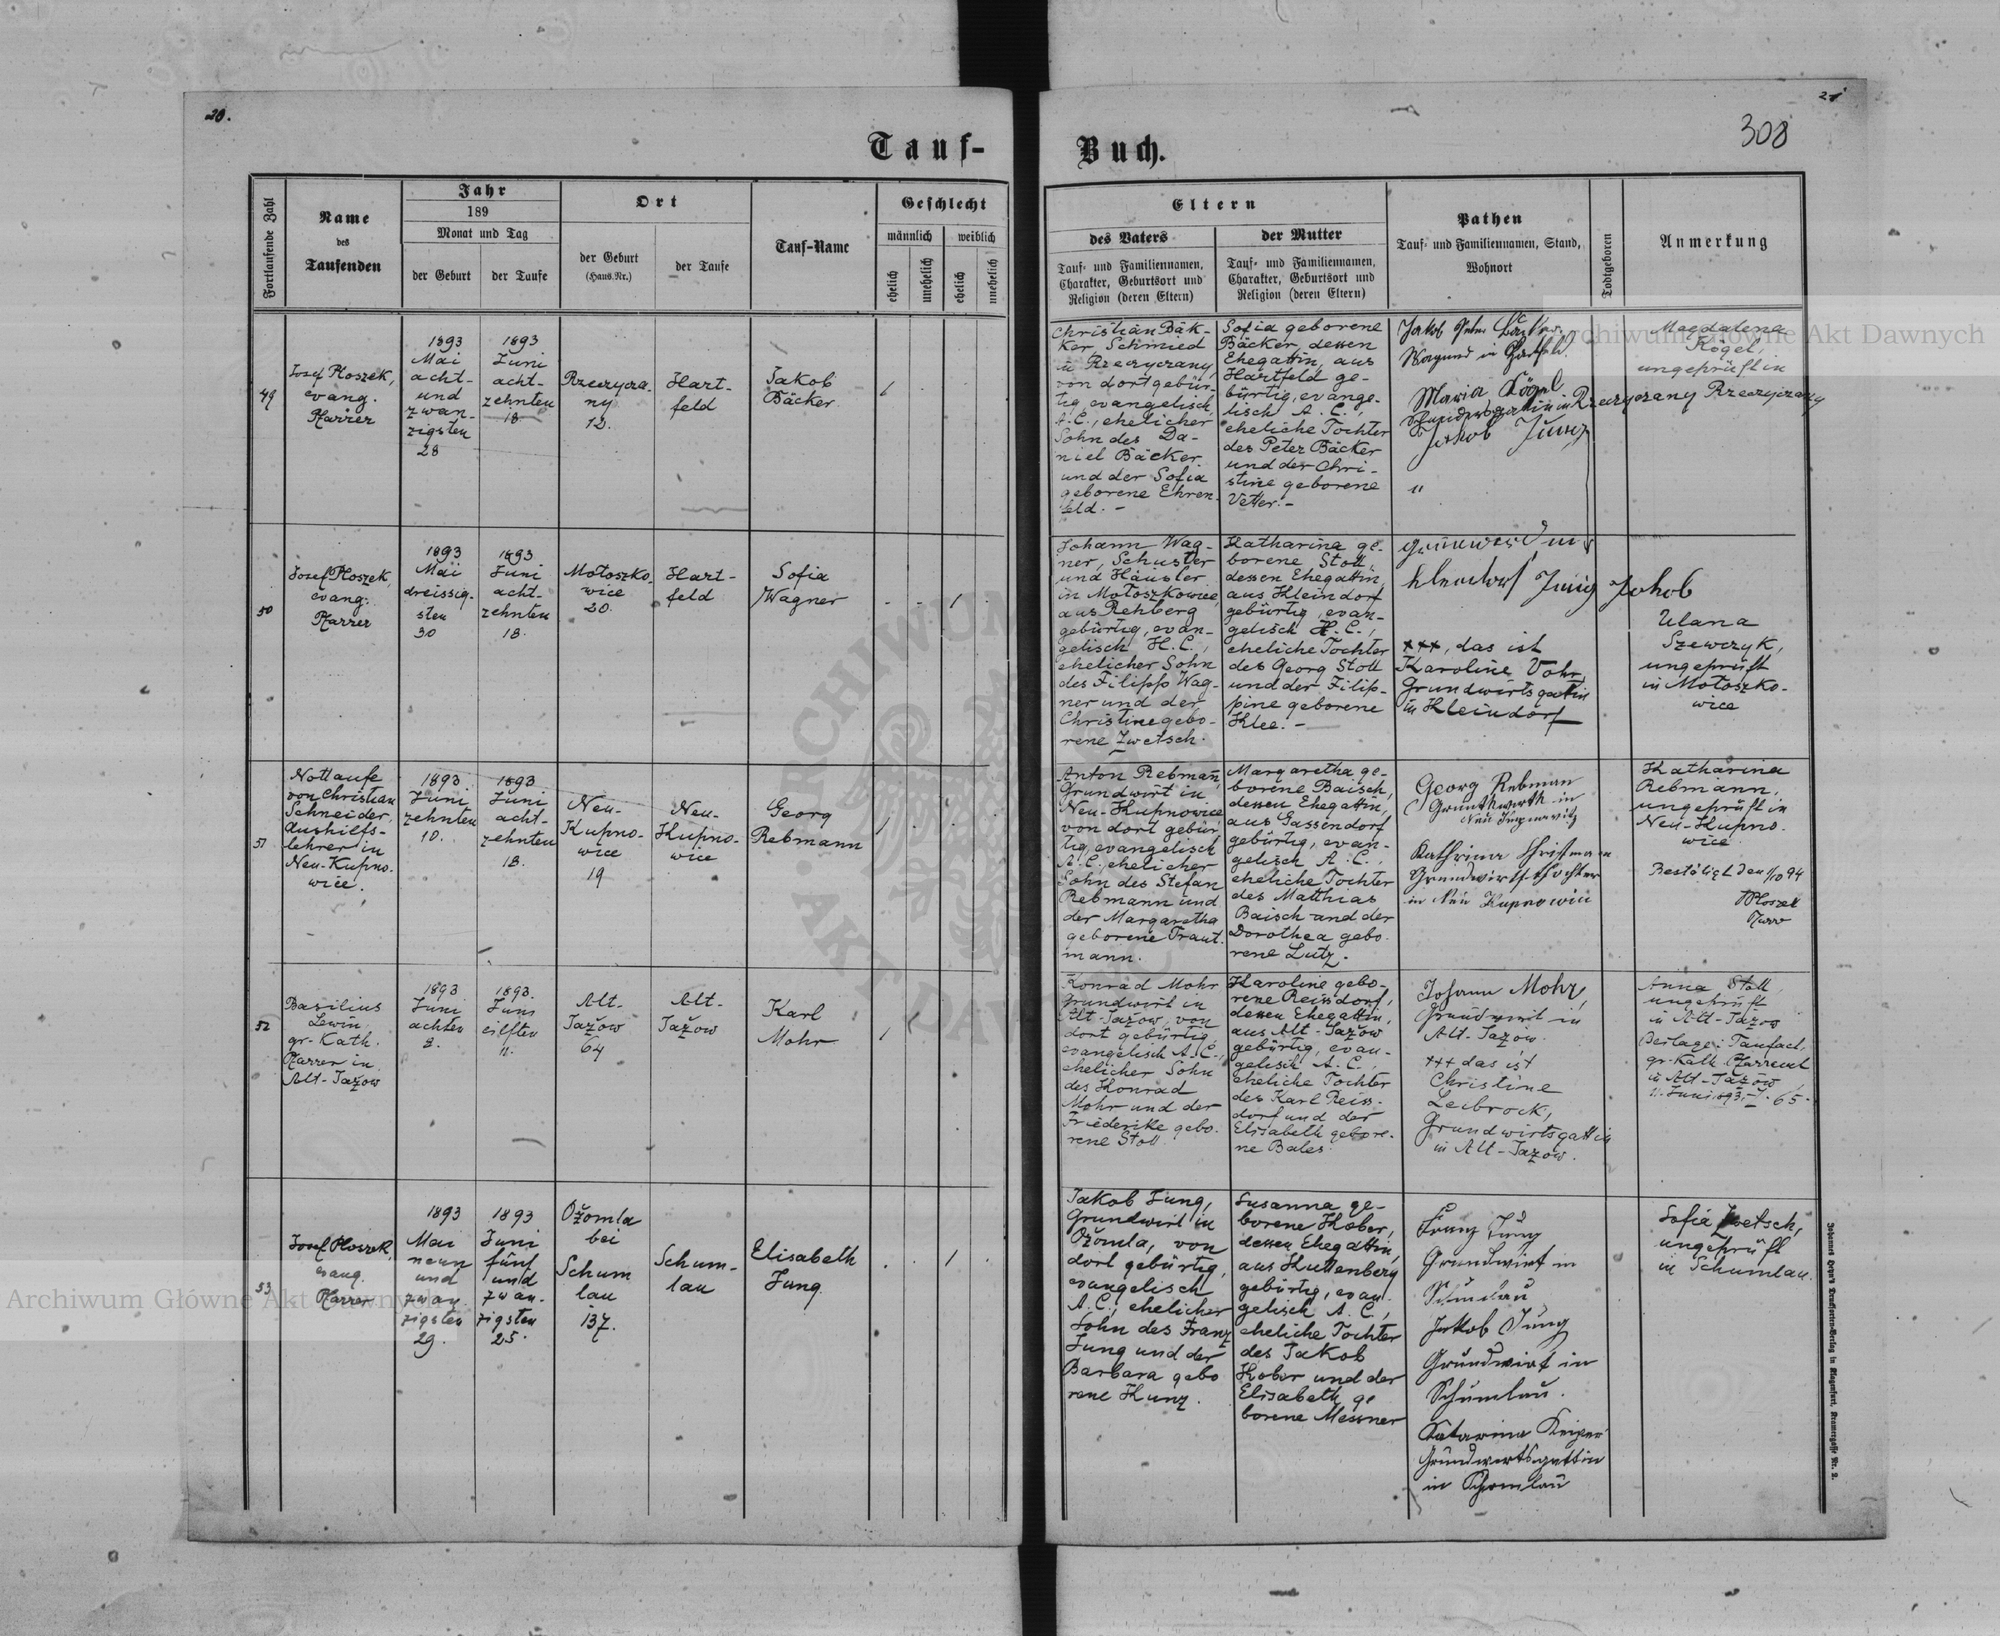 20.
21
308
Tauf-
Buch.
Fortlaufende Zahl
Name
des
Taufenden
Jahr
189
Monat und Tag
der Geburt
der Taufe
Ort
der Geburt
(Haus-Nr.)
der Taufe
Tauf-Name
Geschlecht
männlich
weiblich
ehelich
unehelich
ehelich
unehelich
Eltern
des Vaters
Tauf- und Familiennamen,
Charakter, Geburtsort und
Religion (deren Eltern)
der Mutter
Tauf- und Familiennamen,
Charakter, Geburtsort und
Religion (deren Eltern)
Pathen
Tauf- und Familiennamen, Stand,
Wohnort
Todtgeboren
Anmerkung
49
Josef Ploszek,
evang.
Pfarrer
1893
Mai
acht-
und
zwan-
zigsten
28
1893
Juni
acht-
zehnten
18.
Rzeczycza-
ny
12.
Hart-
feld
Jakob
Bäcker
1
Christian Bäk-
ker Schmied
in Rzeczyczany,
von dort gebür-
tig, evangelisch
A. C., ehelicher
Sohn des Da-
niel Bäcker
und der Sofia
geborene Ehren-
feld. -
Sofia geborene
Bäcker, dessen
Ehegattin, aus
Hartfeld ge-
bürtig, evange-
lisch A. C.,
eheliche Tochter
des Peter Bäcker
und der Chri-
stine geborene
Vetter. -
Jakob
in Hartfeld.
Maria Kögel
in Rzeczyczany
Jakob Jung
"
Magdalena
Kögel,
ungeprüft in
Rzeczyczany
50
Josef Ploszek,
evang.
Pfarrer
1893
Mai
dreissig-
sten
30
1893
Juni
acht-
zehnten
18.
Mołoszko-
wice
20.
Hart-
feld
Sofia
Wagner
1
Johann Wag-
ner, Schuster
und Häusler
in Mołoszkowice,
aus Rehberg
gebürtig, evan-
gelisch H. C.,
ehelicher Sohn
des Filipp Wag-
ner und der
Christine gebo-
rene Zwetsch.
Katharina ge-
borene Stoll,
dessen Ehegattin,
aus Kleindorf
gebürtig, evan-
gelisch H. C.,
eheliche Tochter
des Georg Stoll
und der Filip-
pine geborene
Klee. -
Kleindorf Jung Jakob
+++, das ist
Karoline Vohr,
Grundwirtsgattin
in Kleindorf
Ulana
Szewczyk,
ungeprüft
in Mołoszko-
wice
51
Nottaufe
von Christian
Schneider,
Aushilfs-
lehrer in
Neu-Kupno-
wice.
1893
Juni
zehnten
10.
1893
Juni
acht-
zehnten
18.
Neu-
Kupno-
wice
19
Neu-
Kupno-
wice
Georg
Rebmann
1
Anton Rebmann,
Grundwirt in
Neu-Kupnowice,
von dort gebür-
tig, evangelisch
A. C., ehelicher
Sohn des Stefan
Rebmann und
der Margaretha
geborene Traut-
mann.
Margaretha ge-
borene Baisch,
dessen Ehegattin,
aus Gassendorf
gebürtig, evan-
gelisch A. C.,
eheliche Tochter
des Matthias
Baisch und der
Dorothea gebo-
rene Lutz.
Georg Rebman
Grunthwirth in
Kathrina Christman
Grundwirtstochter
in Neu Kupnowice
Katharina
Rebmann,
ungeprüft in
Neu-Kupno-
wice
Bestätigt den 1/10 94
Ploszek
Pfarrer
52
Basilius
Lewin,
gr.-Kath.
Pfarrer in
Alt-Jażow
1893
Juni
achten
8.
1893.
Juni
eilften
11.
Alt-
Jażow
64
Alt-
Jażow
Karl
Mohr
1
Konrad Mohr
Grundwirt in
Alt-Jażow, von
dort gebürtig,
evangelisch A. C.,
ehelicher Sohn
des Konrad
Mohr und der
Friederike gebo-
rene Stoll
Karoline gebo-
rene Reissdorf,
dessen Ehegattin,
aus Alt-Jażow
gebürtig, evan-
gelisch A. C.,
eheliche Tochter
des Karl Reiss-
dorf und der
Elisabeth gebore-
ne Bales
Johann Mohr,
Grundwirt in
Alt-Jażow.
+++ das ist
Christine
Leibrock,
Grundwirtsgattin
in Alt-Jażow.
Anna Stoll,
ungeprüft
in Alt-Jażow
Beilage: Taufact
gr.-Kath. Pfarramt
in Alt-Jażow
11. Juni 1893. 65.
53
Josef Ploszek,
evang.
Pfarrer
1893
Mai
neun
und
zwan-
zigsten
29.
1893
Juni
fünf
und
zwan-
zigsten
25.
Ożomla
bei
Schum
lau
137.
Schum-
lau
Elisabeth
Jung
1
Jakob Jung,
Grundwirt in
Ożomla, von
dort gebürtig,
evangelisch
A. C., ehelicher
Sohn des Franz
Jung und der
Barbara gebo
rene Kunz.
Susanna ge-
borene Kober,
dessen Ehegattin,
aus Kuttenberg
gebürtig, evan-
gelisch A. C.,
eheliche Tochter
des Jakob
Kober und der
Elisabeth ge
borene Messner
Franz Jung
Grundwirt in
Schumlau
Jakob Jung
Grundwirt in
Schumlau.
Katarina Keiper
Grundwirtsgattin
in Schomlau
Sofia Zwetsch,
ungeprüft
in Schumlau.
Archiwum Główne Akt Dawnych
Archiwum Główne Akt Dawnych
Johannes Heyn's Drucksorten-Verlag in Klagenfurt, Kramergasse Nr. 2.